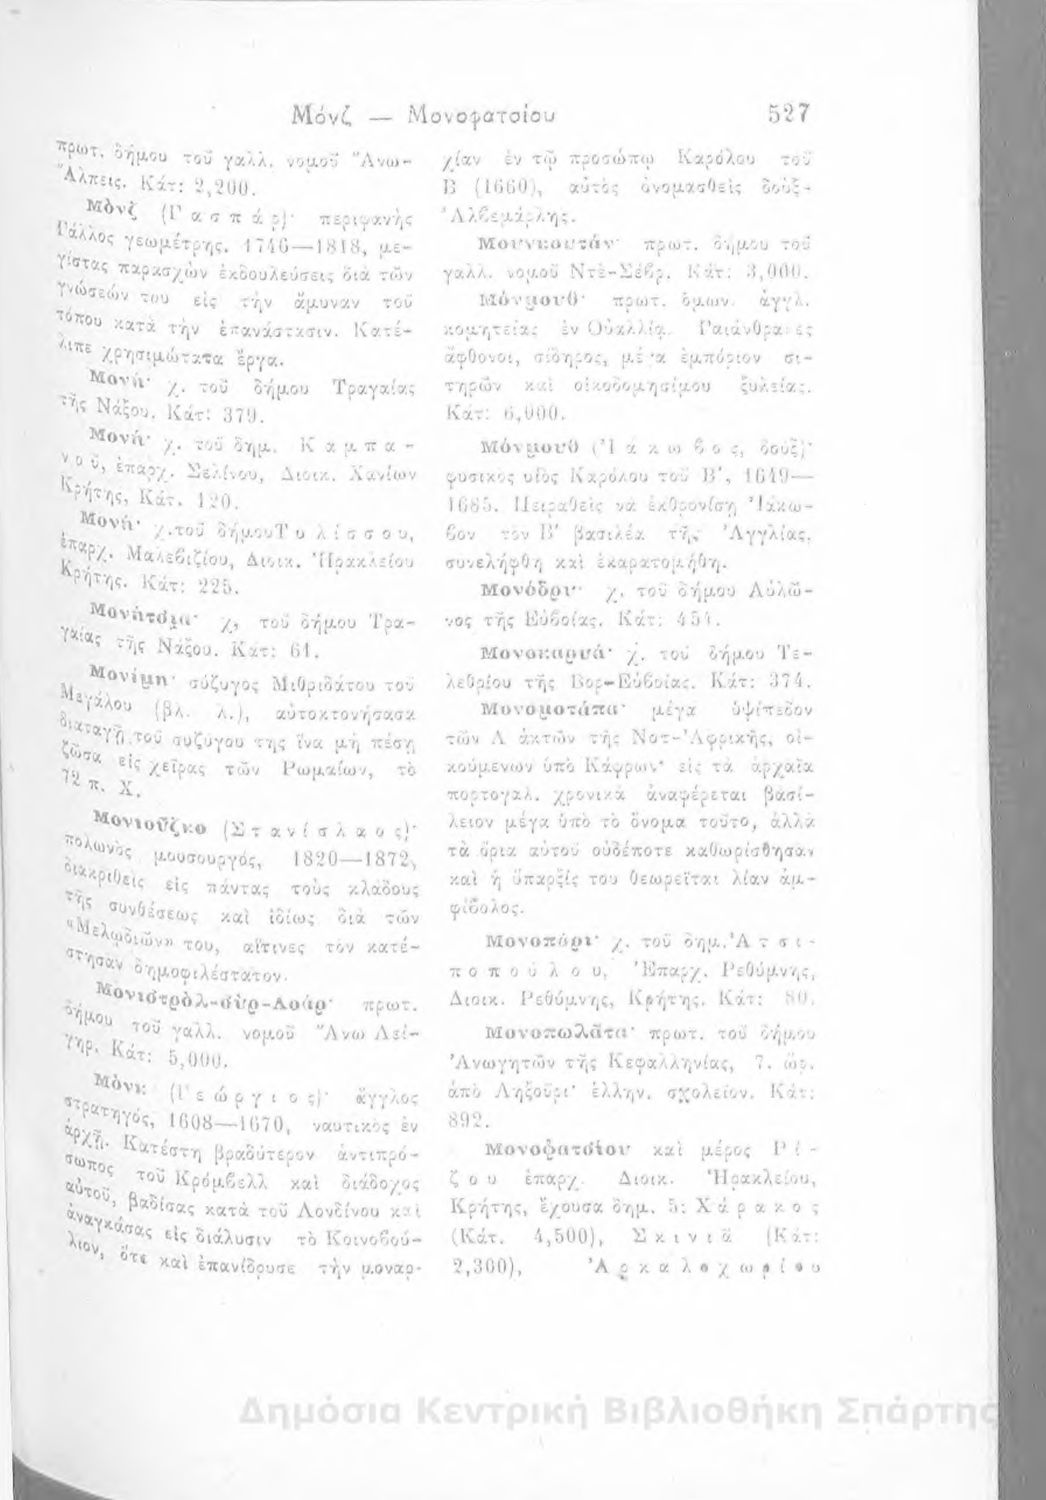 Μόνζ — Μονοφατσίου 527
πρωτ. δήμου τοῦ γαλλ. νομοῦ Ἄνω-
Ἄλπεις. Κάτ: 2,200.
Μὸνζ (Γ α σ π ά ρ)· περιφανὴς
Γάλλος γεωμέτρης. 1746—1818, με-
γίστας παρασχὼν ἐκδουλεύσεις διὰ τῶν
γνώσεών του εἰς τὴν ἄμυναν τοῦ
τόπου κατὰ τὴν ἐπανάστασιν. Κατέ-
λιπε χρησιμώτατα ἔργα.
Μονή· χ. τοῦ δήμου Τραγαίας
τῆς Νάξου. Κάτ: 379.
Μονή· χ. τοῦ δημ. Κ α μ π α -
ν ο ῦ, ἐπαρχ. Σελίνου, Διοικ. Χανίων
Κρήτης, Κάτ. 120.
Μονή· χ.τοῦ δήμουΤ υ λ ί σ σ ο υ,
ἐπαρχ. Μαλεβιζίου, Διοικ. Ἡρακλείου
Κρήτης. Κάτ: 225.
Μονήτσια· χ, τοῦ δήμου Τρα-
γαίας τῆς Νάξου. Κάτ: 61.
Μονίμη· σύζυγος Μιθριδάτου τοῦ
Μεγάλου (βλ. λ.), αὐτοκτονήσασα
διαταγῇ τοῦ συζύγου της ἵνα μὴ πέσῃ
ζῶσα εἰς χεῖρας τῶν Ρωμαίων, τὸ
72 π. Χ.
Μονιοῦζκο (Σ τ α ν ί σ λ α ο ς)·
πολωνὸς μουσουργός, 1820—1872,
διακριθεὶς εἰς πάντας τοὺς κλάδους
τῆς συνθέσεως καὶ ἰδίως διὰ τῶν
«Μελῳδιῶν» του, αἵτινες τὸν κατέ-
στησαν δημοφιλέστατον.
Μονιστρὸλ-σὺρ-Λοάρ· πρωτ.
δήμου τοῦ γαλλ. νομοῦ Ἄνω Λεί-
γηρ. Κάτ: 5,000.
Μὸνκ (Γ ε ώ ρ γ ι ο ς)· ἄγγλος
στρατηγός, 1608—1670, ναυτικὸς ἐν
ἀρχῇ. Κατέστη βραδύτερον ἀντιπρό-
σωπος τοῦ Κρόμβελλ καὶ διάδοχος
αὐτοῦ, βαδίσας κατὰ τοῦ Λονδίνου καὶ
ἀναγκάσας εἰς διάλυσιν τὸ Κοινοβού-
λιον, ὅτε καὶ ἐπανίδρυσε τὴν μοναρ-
χίαν ἐν τῷ προσώπῳ Καρόλου τοῦ
Β (1660), αὐτὸς ὀνομασθεὶς δοὺξ-
Ἀλβεμάρλης.
Μονγκουτάν· πρωτ. δήμου τοῦ
γαλλ. νομοῦ Ντὲ-Σέβρ. Κάτ: 3,000.
Μόνμουθ· πρωτ. ὁμων. ἀγγλ.
κομητείας ἐν Οὐαλλίᾳ. Γαιάνθρακες
ἄφθονοι, σίδηρος, μέγα ἐμπόριον σι-
τηρῶν καὶ οἰκοδομησίμου ξυλείας.
Κάτ: 6,000.
Μόνμουθ (Ἰ ά κ ω β ο ς, δούξ)·
φυσικὸς υἱὸς Καρόλου τοῦ Β', 1649—
1685. Πειραθεὶς νὰ ἐκθρονίσῃ Ἰάκω-
βον τὸν Β' βασιλέα τῆς Ἀγγλίας,
συνελήφθη καὶ ἐκαρατομήθη.
Μονόδρι· χ. τοῦ δήμου Αὐλῶ-
νος τῆς Εὐβοίας. Κάτ: 451.
Μονοκαρυά· χ. τοῦ δήμου Τε-
λεθρίου τῆς Βορ-Εὐβοίας. Κάτ: 374.
Μονομοτάπα· μέγα ὑψίπεδον
τῶν Α ἀκτῶν τῆς Νοτ-Ἀφρικῆς, οἰ-
κούμενων ὑπὸ Κάφρων· εἰς τὰ ἀρχαῖα
πορτογαλ. χρονικὰ ἀναφέρεται βασί-
λειον μέγα ὑπὸ τὸ ὄνομα τοῦτο, ἀλλὰ
τὰ ὅρια αὐτοῦ οὐδέποτε καθωρίσθησαν
καὶ ἡ ὕπαρξίς του θεωρεῖται λίαν ἀμ-
φίβολος.
Μονοπάρι· χ. τοῦ δημ. Ἀ τ σ ι -
π ο π ο ύ λ ο υ, Ἐπαρχ. Ρεθύμνης,
Διοικ. Ρεθύμνης, Κρήτης. Κάτ: 80.
Μονοπωλᾶτα· πρωτ. τοῦ δήμου
Ἀνωγητῶν τῆς Κεφαλληνίας, 7. ὡρ.
ἀπὸ Ληξοῦρι· ἑλλην. σχολεῖον. Κάτ:
892.
Μονοφατσίου καὶ μέρος Ρ ί -
ζ ο υ ἐπαρχ. Διοικ. Ἡρακλείου,
Κρήτης, ἔχουσα δημ. 5: Χ ά ρ α κ ο ς
(Κάτ. 4,500), Σ κ ι ν ι ᾶ (Κάτ:
2,300), Ἀ ρ κ α λ ο χ ω ρ ί ο υ
Δημόσια Κεντρική Βιβλιοθήκη Σπάρτης